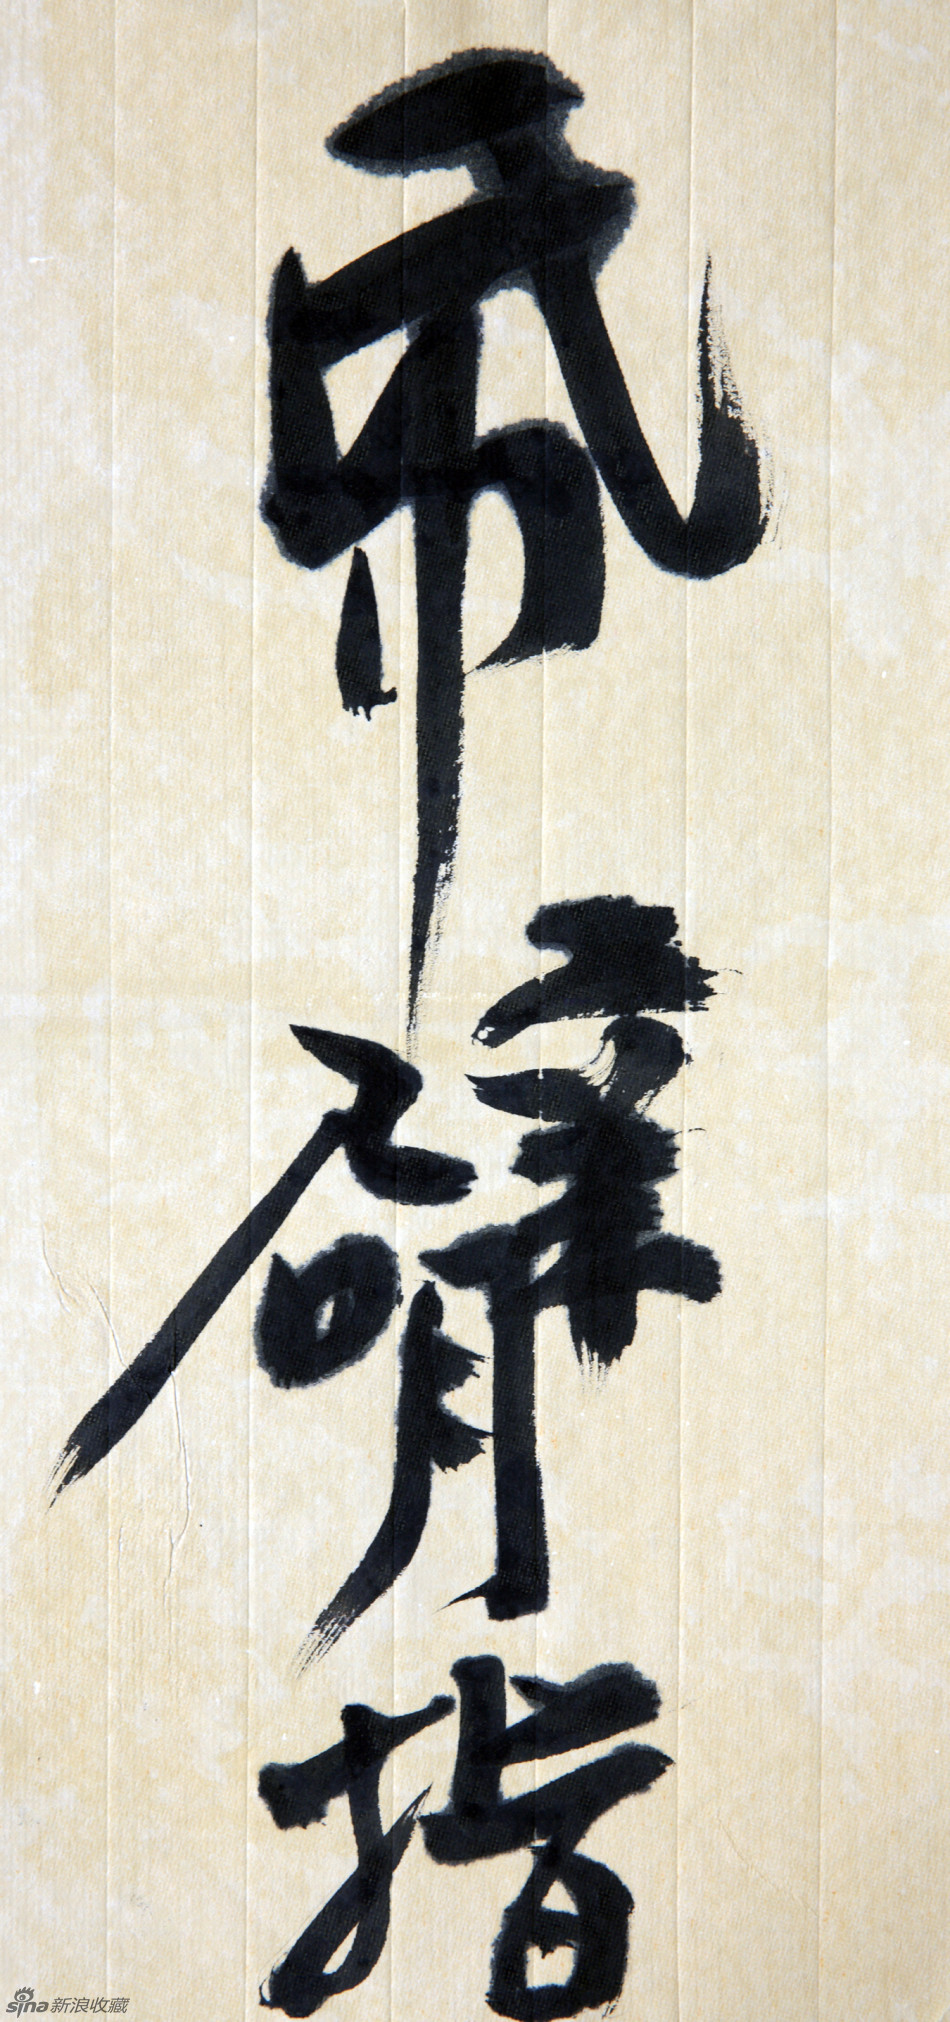 臂指
sina新浪收藏